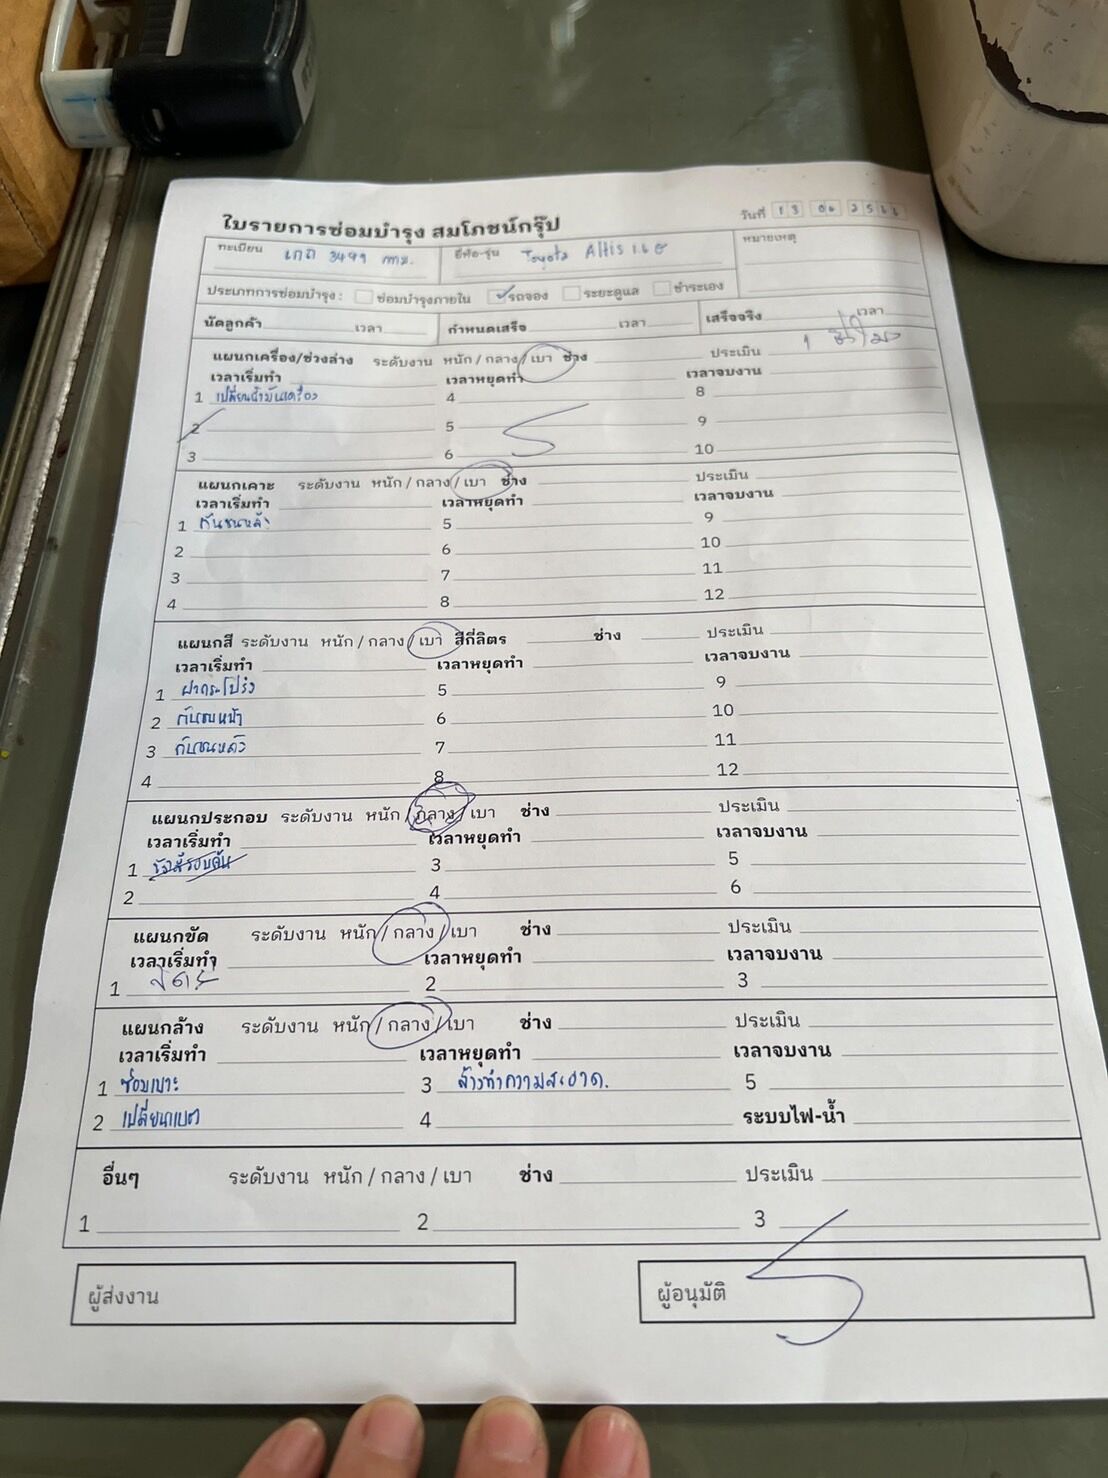 ใบรายการซ่อมบำรุง สมโภชน์กรุ๊ป
วันที่ 13 06 25
ทะเบียน 3499 กทม. ยี่ห้อ-รุ่น Toyota Altis 1.6 หมายเหตุ
ประเภทการซ่อมบำรุง : ซ่อมบำรุงภายใน รถจอง ระยะดูแล ชำระเอง
นัดลูกค้า เวลา กำหนดเสร็จ เวลา เสร็จจริง เวลา
แผนกเครื่อง/ช่วงล่าง ระดับงาน หนัก / กลาง / เบา ช่าง ประเมิน 1 ชั่วโมง
เวลาเริ่มทำ เวลาหยุดทำ เวลาจบงาน
1 เปลี่ยนน้ำมันเครื่อง 4 8
2 5 9
3 6 10
แผนกเคาะ ระดับงาน หนัก / กลาง / เบา ช่าง ประเมิน
เวลาเริ่มทำ เวลาหยุดทำ เวลาจบงาน
1 กันชนหลัง 5 9
2 6 10
3 7 11
4 8 12
แผนกสี ระดับงาน หนัก / กลาง / เบา สีกี่ลิตร ช่าง ประเมิน
เวลาเริ่มทำ เวลาหยุดทำ เวลาจบงาน
1 ฝากระโปรง 5 9
2 กันชนหน้า 6 10
3 กันชนหลัง 7 11
4 8 12
แผนกประกอบ ระดับงาน หนัก / กลาง / เบา ช่าง ประเมิน
เวลาเริ่มทำ เวลาหยุดทำ เวลาจบงาน
1 3 5
2 4 6
แผนกขัด ระดับงาน หนัก / กลาง / เบา ช่าง ประเมิน
เวลาเริ่มทำ เวลาหยุดทำ เวลาจบงาน
1 2 3
แผนกล้าง ระดับงาน หนัก / กลาง / เบา ช่าง ประเมิน
เวลาเริ่มทำ เวลาหยุดทำ เวลาจบงาน
1 ซ่อมเบาะ 3 ล้างทำความสะอาด. 5
2 เปลี่ยนแบต 4 ระบบไฟ-น้ำ
อื่นๆ ระดับงาน หนัก / กลาง / เบา ช่าง ประเมิน
1 2 3
ผู้ส่งงาน ผู้อนุมัติ